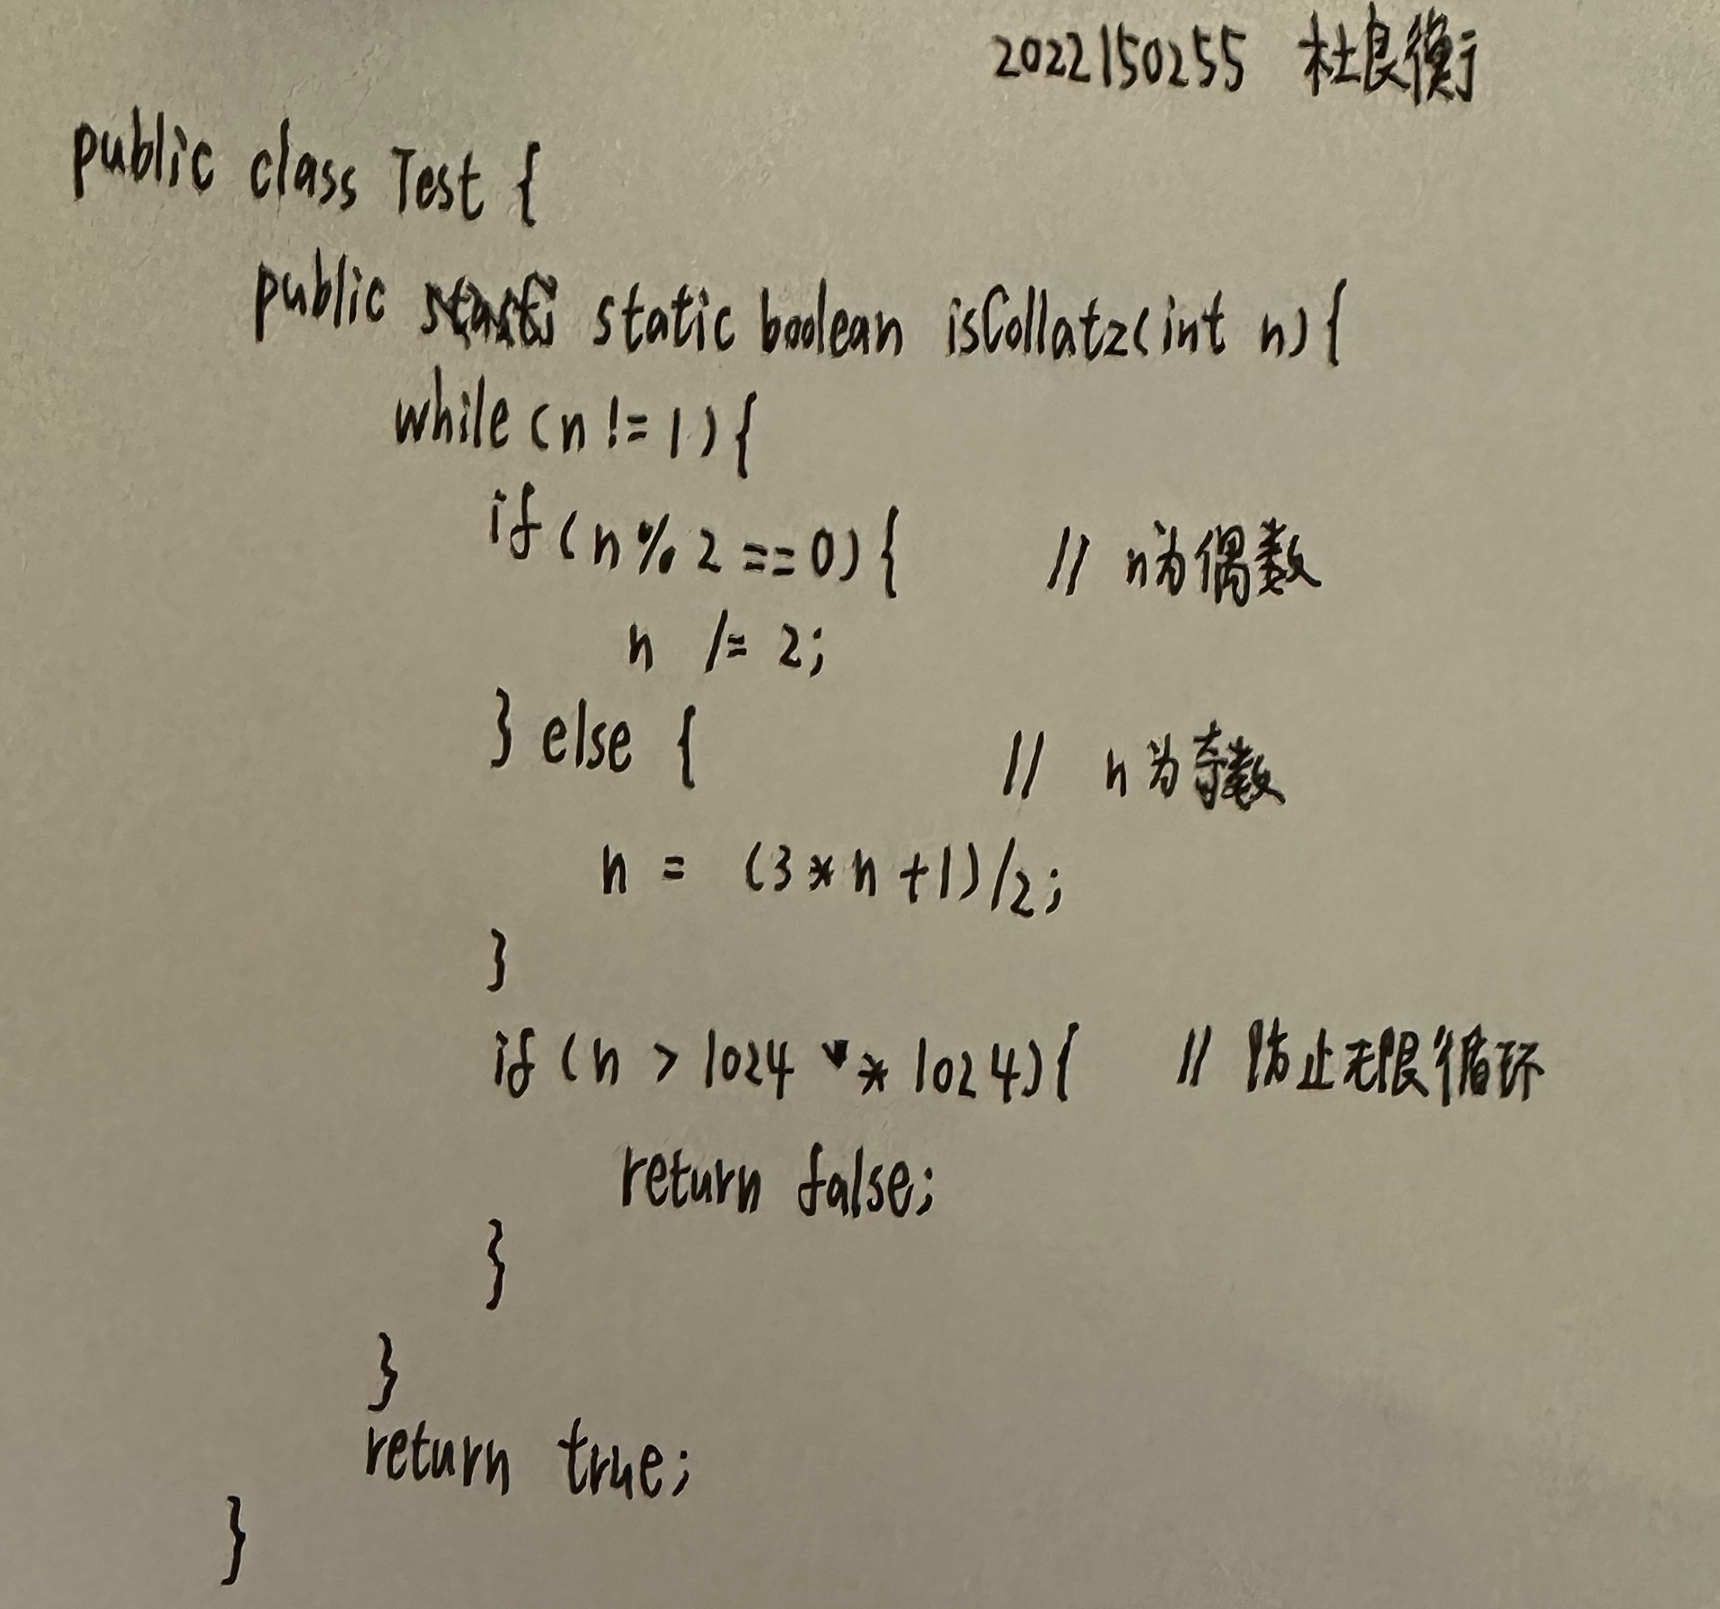 2022150255 杜良衡
public class Test {
public static boolean isCollatz(int n){
while(n != 1){
if(n % 2 == 0){ // n为偶数
n /= 2;
} else { // n为奇数
n = (3*n+1)/2;
}
if(n > 1024 * 1024){ // 防止无限循环
return false;
}
}
return true;
}